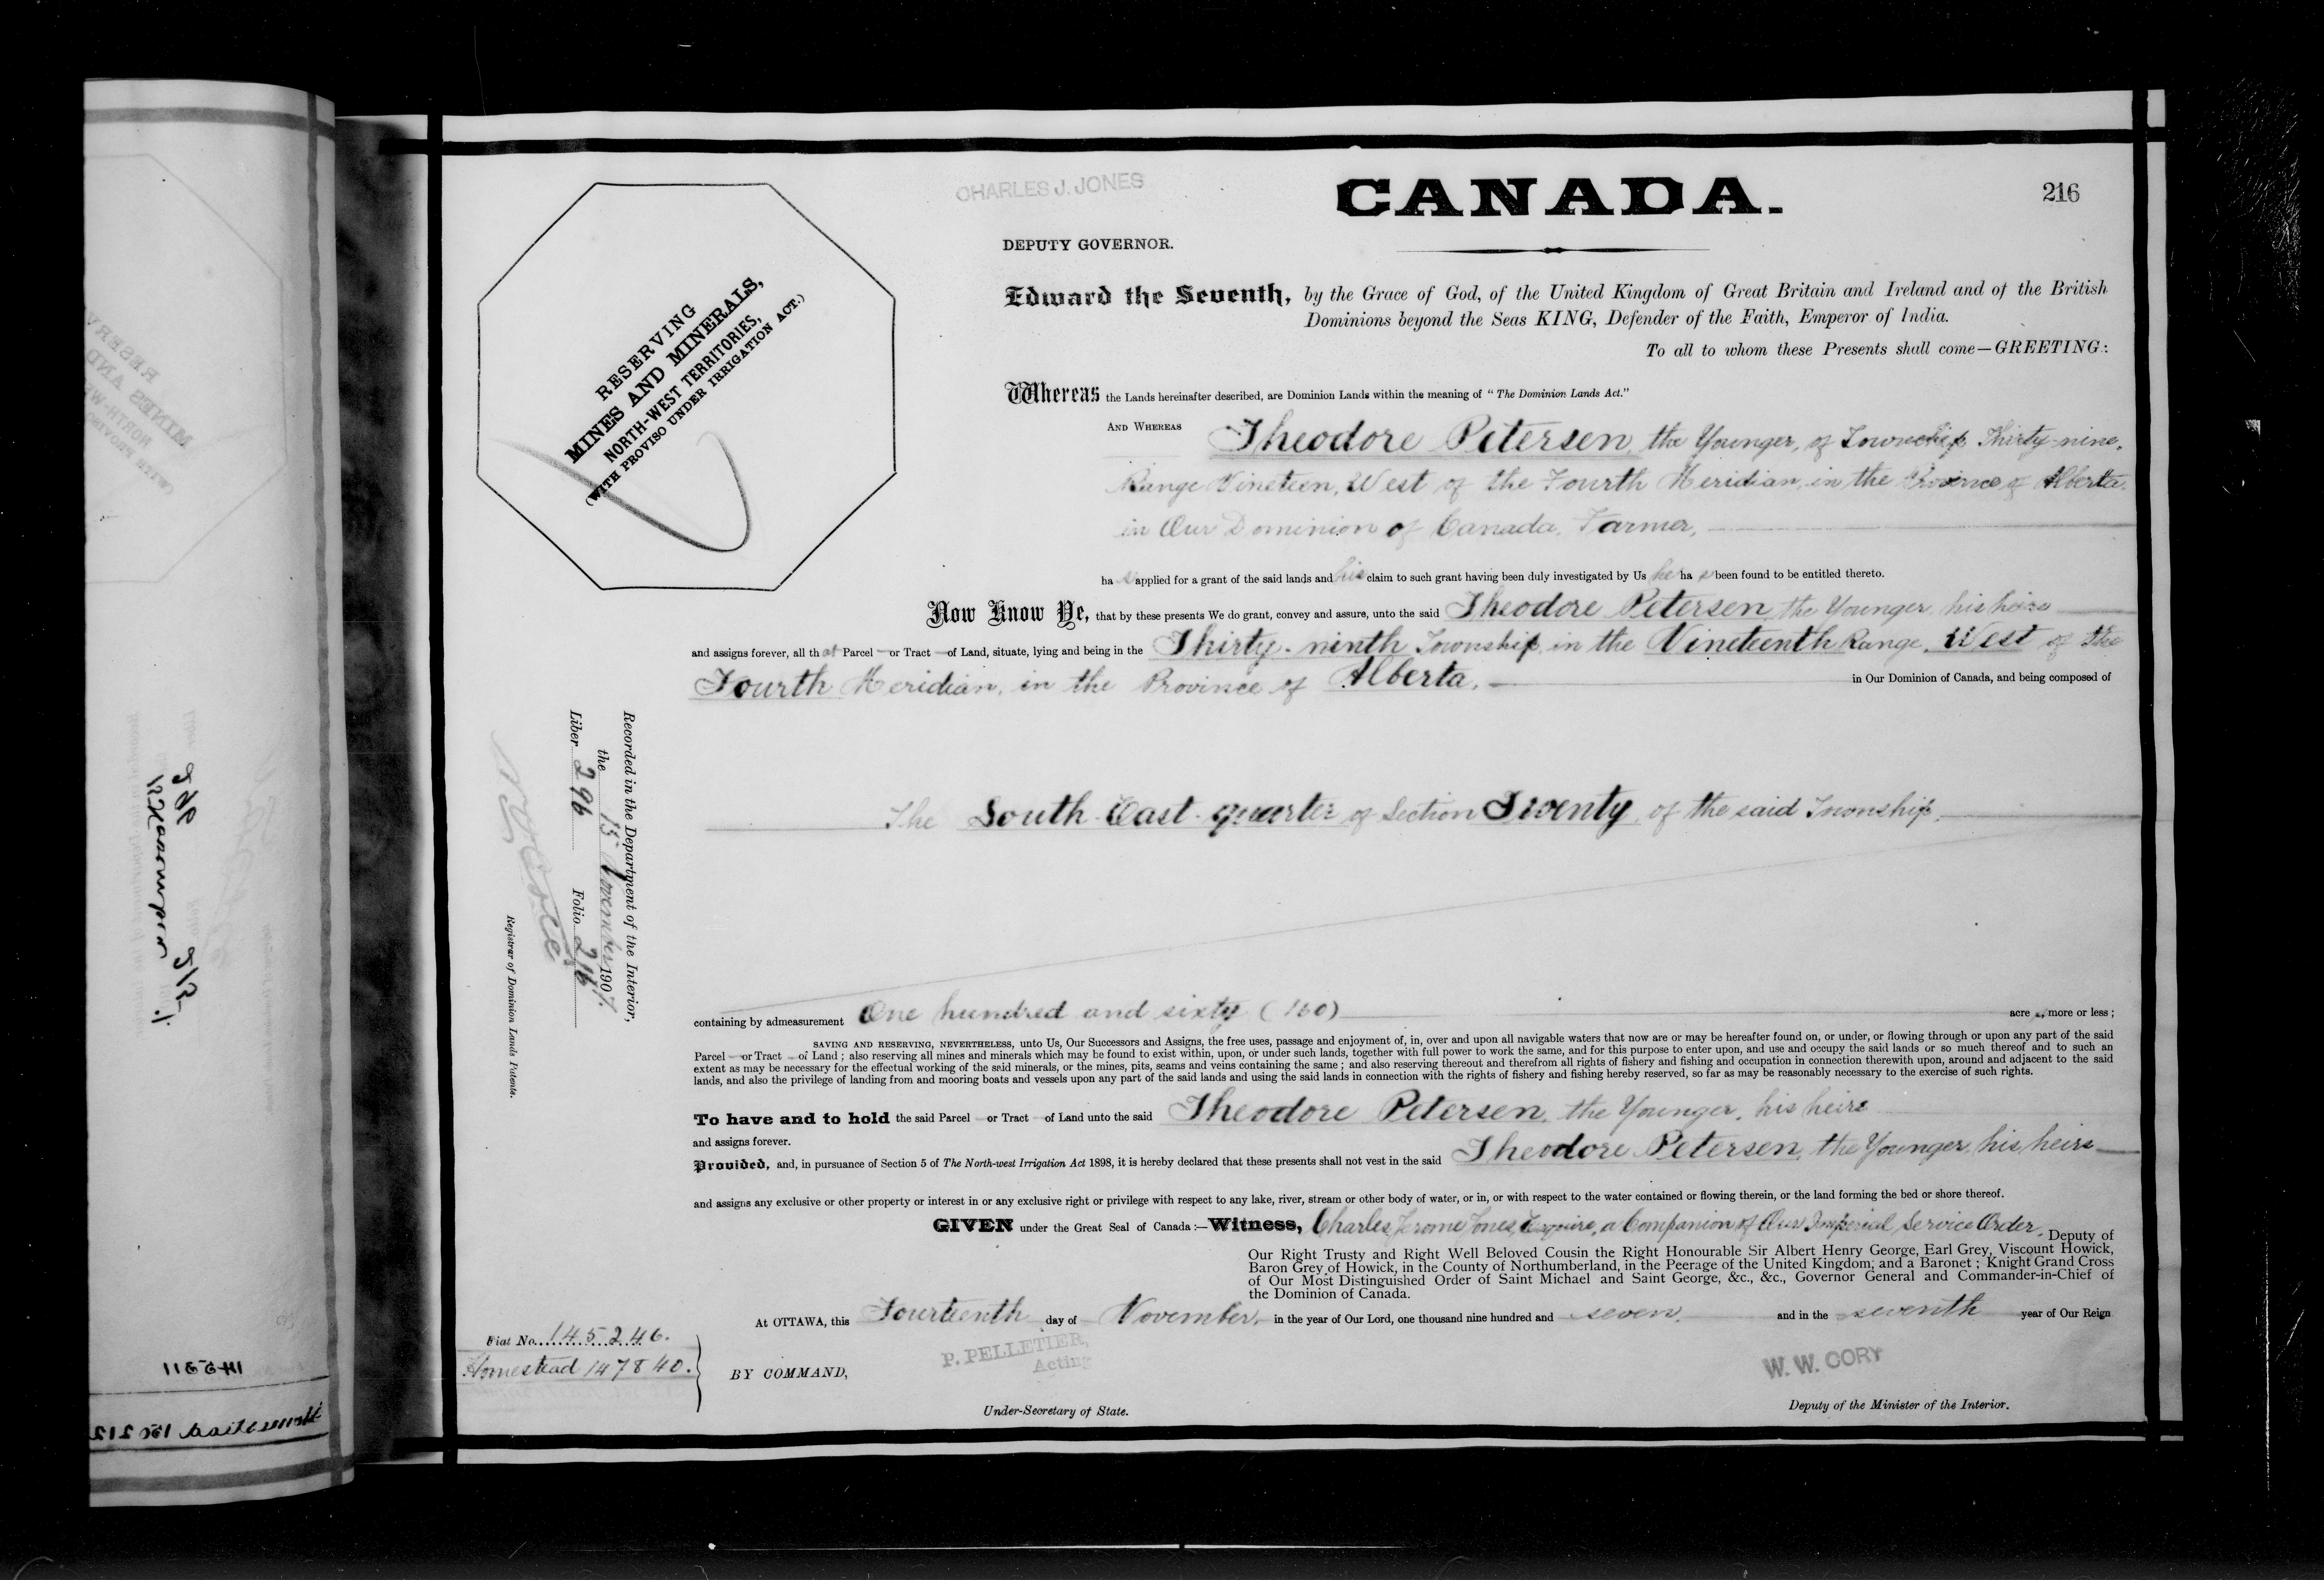 CHARLES J. JONES
CANADA.
216
DEPUTY GOVERNOR.
RESERVING
MINES AND MINERALS,
NORTH-WEST TERRITORIES,
(WITH PROVISO UNDER IRRIGATION ACT.)
Edward the Seventh, by the Grace of God, of the United Kingdom of Great Britain and Ireland and of the British
Dominions beyond the Seas KING, Defender of the Faith, Emperor of India.
To all to whom these Presents shall come—GREETING:
Whereas the Lands hereinafter described, are Dominion Lands within the meaning of "The Dominion Lands Act."
AND WHEREAS Theodore Petersen, the Younger, of Township Thirty-nine,
Range Nineteen, West of the Fourth Meridian, in the Province of Alberta
in Our Dominion of Canada, Farmer,
has applied for a grant of the said lands and his claim to such grant having been duly investigated by Us he has been found to be entitled thereto.
Now Know Ye, that by these presents We do grant, convey and assure, unto the said Theodore Petersen, the Younger, his heirs
and assigns forever, all that Parcel or Tract of Land, situate, lying and being in the Thirty-ninth Township, in the Nineteenth Range, West of the
Fourth Meridian, in the Province of Alberta, in Our Dominion of Canada, and being composed of
The South East quarter of Section Twenty of the said Township,
Recorded in the Department of the Interior,
the 15 November 1907.
Liber 296 Folio 216
Registrar of Dominion Lands Patents.
containing by admeasurement One hundred and sixty (160) acres, more or less;
SAVING AND RESERVING, NEVERTHELESS, unto Us, Our Successors and Assigns, the free uses, passage and enjoyment of, in, over and upon all navigable waters that now are or may be hereafter found on, or under, or flowing through or upon any part of the said
Parcel or Tract of Land; also reserving all mines and minerals which may be found to exist within, upon, or under such lands, together with full power to work the same, and for this purpose to enter upon, and use and occupy the said lands or so much thereof and to such an
extent as may be necessary for the effectual working of the said minerals, or the mines, pits, seams and veins containing the same; and also reserving thereout and therefrom all rights of fishery and fishing and occupation in connection therewith upon, around and adjacent to the said
lands, and also the privilege of landing from and mooring boats and vessels upon any part of the said lands and using the said lands in connection with the rights of fishery and fishing hereby reserved, so far as may be reasonably necessary to the exercise of such rights.
To have and to hold the said Parcel or Tract of Land unto the said Theodore Petersen, the Younger, his heirs
and assigns forever.
Provided, and, in pursuance of Section 5 of The North-west Irrigation Act 1898, it is hereby declared that these presents shall not vest in the said Theodore Petersen, the Younger, his heirs
and assigns any exclusive or other property or interest in or any exclusive right or privilege with respect to any lake, river, stream or other body of water, or in, or with respect to the water contained or flowing therein, or the land forming the bed or shore thereof.
GIVEN under the Great Seal of Canada:—Witness, Charles Jerome Jones, Esquire, a Companion of Our Imperial Service Order, Deputy of
Our Right Trusty and Right Well Beloved Cousin the Right Honourable Sir Albert Henry George, Earl Grey, Viscount Howick,
Baron Grey of Howick, in the County of Northumberland, in the Peerage of the United Kingdom; and a Baronet; Knight Grand Cross
of Our Most Distinguished Order of Saint Michael and Saint George, &c., &c., Governor General and Commander-in-Chief of
the Dominion of Canada.
At OTTAWA, this Fourteenth day of November, in the year of Our Lord, one thousand nine hundred and seven. and in the seventh year of Our Reign
Fiat No. 145246.
Homestead 147840.
BY COMMAND,
P. PELLETIER,
Acting
Under-Secretary of State.
W. W. CORY
Deputy of the Minister of the Interior.